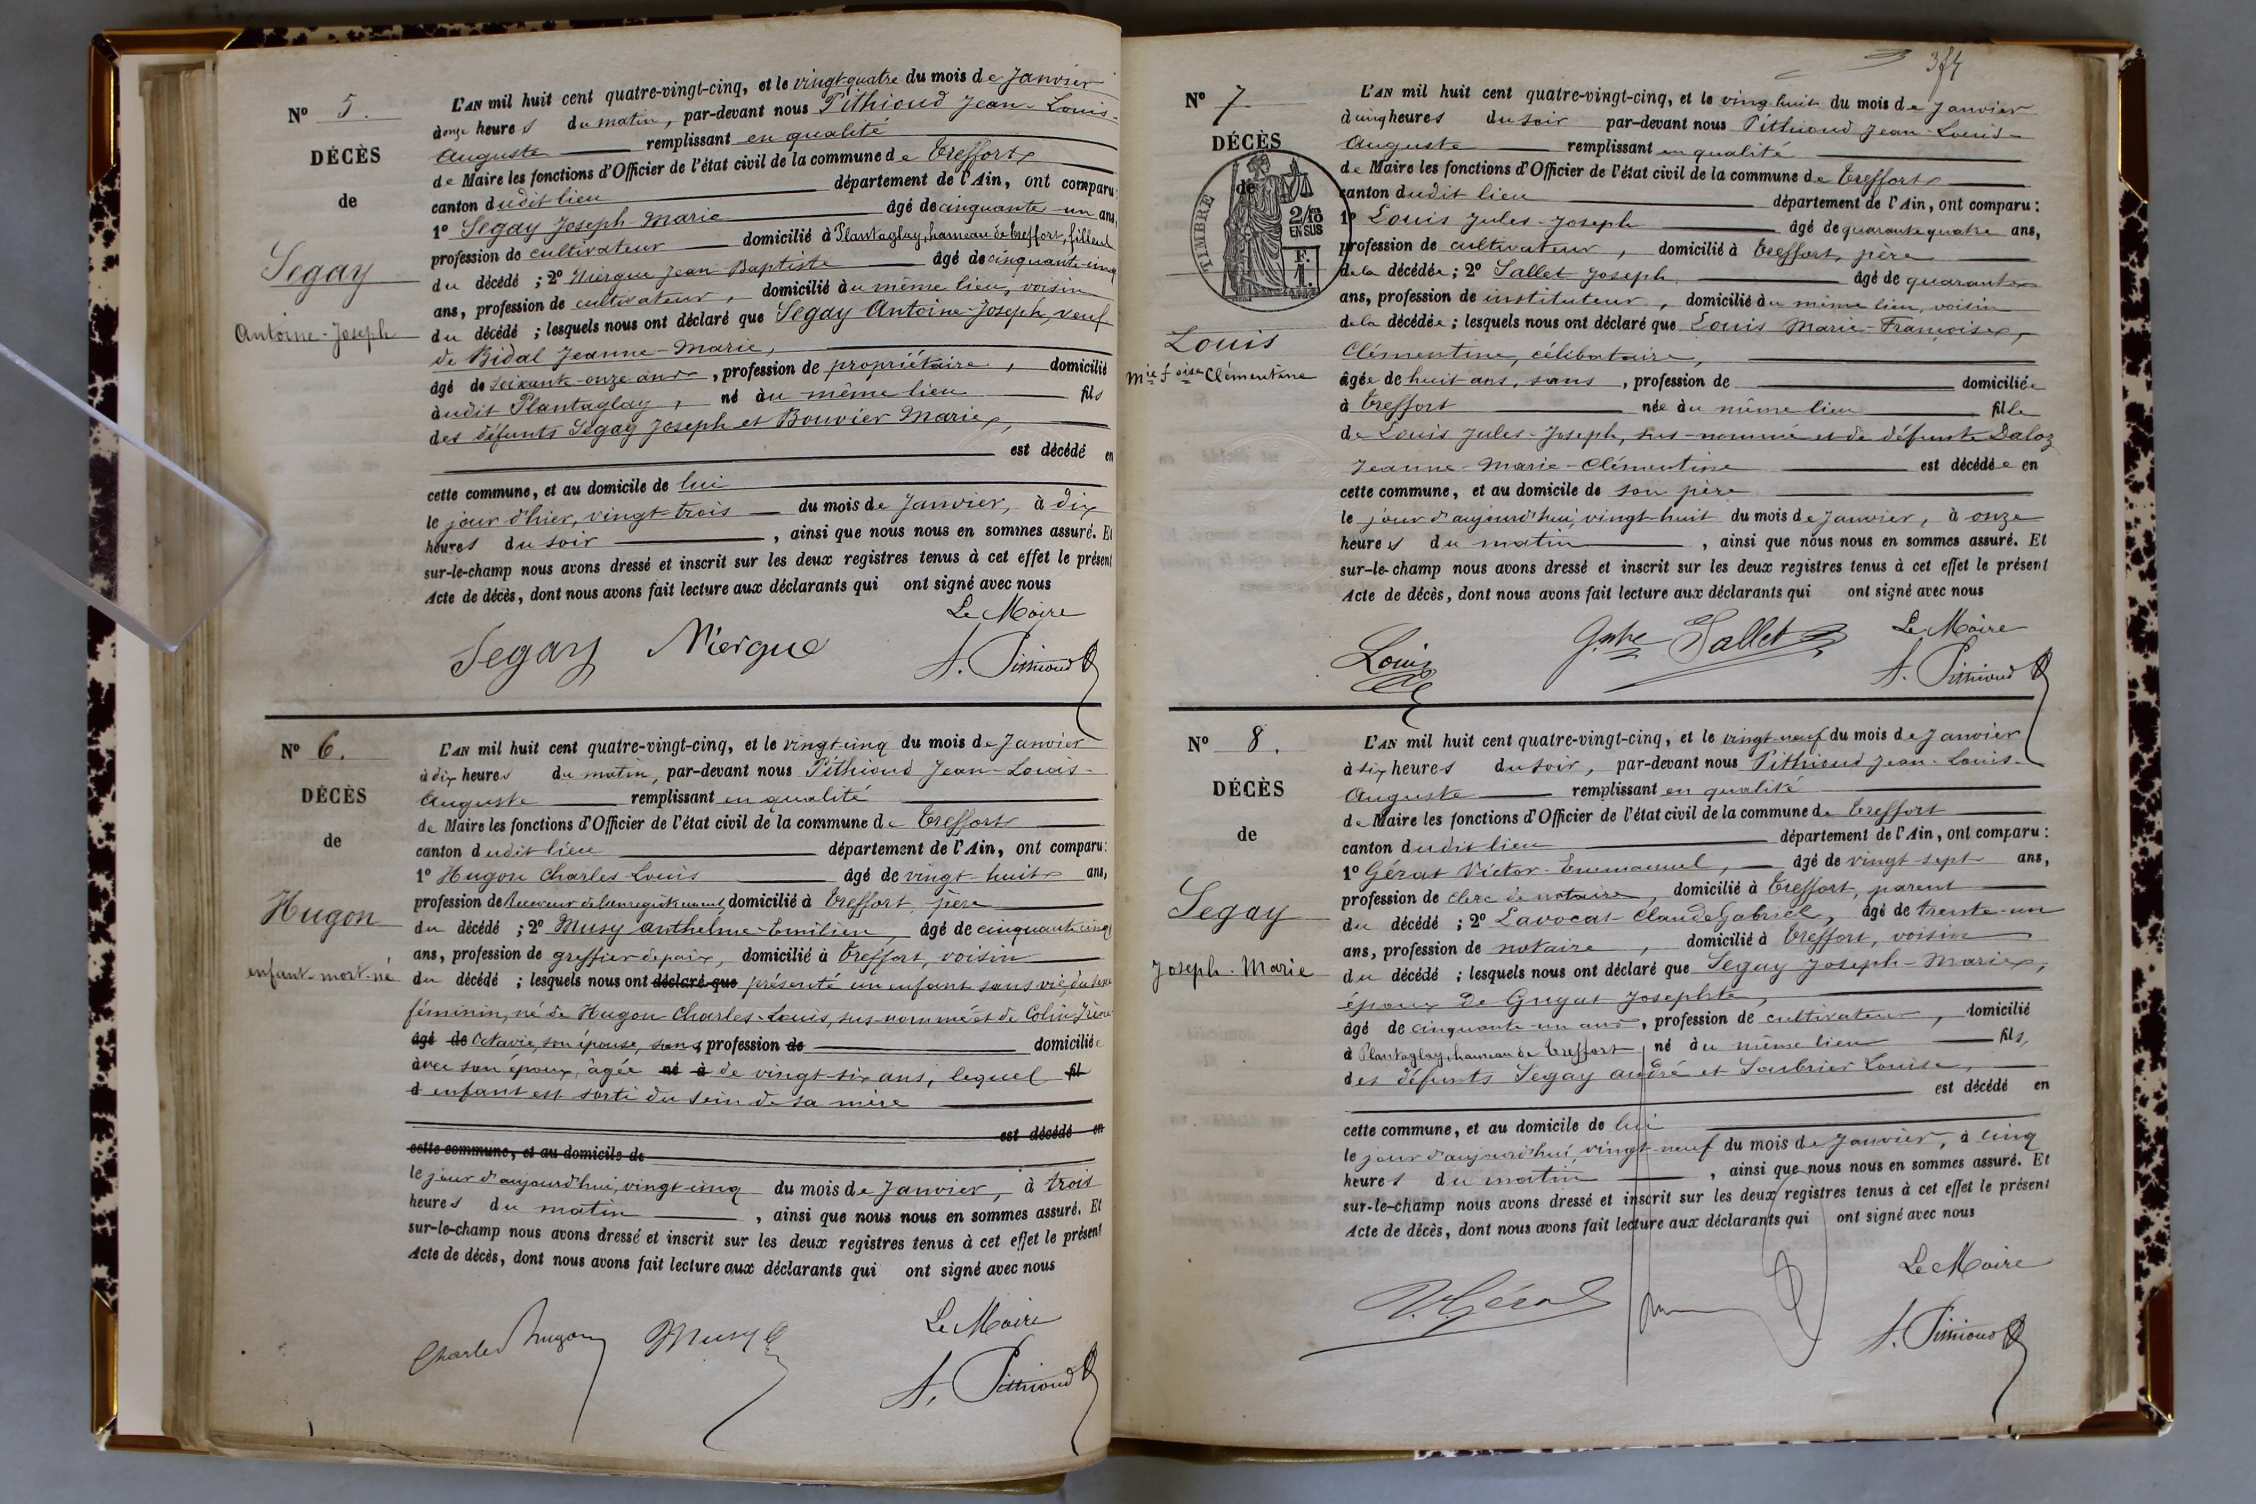 N° 5.
DÉCÈS
de
Segay
Antoine-Joseph
L'AN mil huit cent quatre-vingt-cinq, et le vingt-quatre du mois de Janvier
à onze heures du matin, par-devant nous Pithioud Jean-Louis-
Auguste remplissant en qualité
de Maire les fonctions d'Officier de l'état civil de la commune de Treffort
canton dudit lieu département de l'Ain, ont comparu:
1° Segay Joseph-Marie âgé de cinquante-un ans,
profession de cultivateur domicilié à Plantaglay, hameau de Treffort, filleul
du décédé ; 2° Niergue Jean Baptiste âgé de cinquante-cinq
ans, profession de cultivateur, domicilié au même lieu, voisin
du décédé ; lesquels nous ont déclaré que Segay Antoine-Joseph, veuf
de Bidal Jeanne-Marie,
âgé de soixante-onze ans, profession de propriétaire, domicilié
audit Plantaglay, né au même lieu fils
des défunts Segay Joseph et Bouvier Marie,
est décédé en
cette commune, et au domicile de lui
le jour d'hier, vingt-trois du mois de Janvier, à dix
heures du soir, ainsi que nous nous en sommes assuré. Et
sur-le-champ nous avons dressé et inscrit sur les deux registres tenus à cet effet le présent
Acte de décès, dont nous avons fait lecture aux déclarants qui ont signé avec nous
Le Maire
Segay Niergue A. Pithioud
N° 6.
DÉCÈS
de
Hugon
enfant-mort-né
L'AN mil huit cent quatre-vingt-cinq, et le vingt-cinq du mois de Janvier
à dix heures du matin, par-devant nous Pithioud Jean-Louis-
Auguste remplissant en qualité
de Maire les fonctions d'Officier de l'état civil de la commune de Treffort
canton dudit lieu département de l'Ain, ont comparu:
1° Hugon Charles-Louis âgé de vingt-huit ans,
profession de Receveur de l'enregistrement, domicilié à Treffort, père
du décédé ; 2° Musy Anthelme-Emilien, âgé de cinquante cinq
ans, profession de greffier de paix, domicilié à Treffort, voisin
du décédé ; lesquels nous ont déclaré que présenté un enfant sans vie, du sexe
féminin, né de Hugon Charles-Louis, sus-nommé et de Colin
âgé de Octavie, son épouse, sans profession de domiciliée
avec son époux, âgée né à de vingt-six ans, lequel fil
d enfant est sorti du sein de sa mère
est décédé en
cette commune, et au domicile de
le jour d'aujourd'hui, vingt-cinq du mois de Janvier, à trois
heures du matin, ainsi que nous nous en sommes assuré. Et
sur-le-champ nous avons dressé et inscrit sur les deux registres tenus à cet effet le présent
Acte de décès, dont nous avons fait lecture aux déclarants qui ont signé avec nous
Le Maire
Charles Hugon Musy A. Pithioud
N° 7
DÉCÈS
de
TIMBRE
2/10 EN SUS
F. 1.
Louis
Mie foise Clémentine
L'AN mil huit cent quatre-vingt-cinq, et le vingt-huit du mois de Janvier
à cinq heures du soir par-devant nous Pithioud Jean-Louis-
Auguste remplissant en qualité
de Maire les fonctions d'Officier de l'état civil de la commune de Treffort
canton dudit lieu département de l'Ain, ont comparu:
1° Louis Jules-Joseph âgé de quarante quatre ans,
profession de cultivateur, domicilié à Treffort, père
de la décédée ; 2° Sallet Joseph âgé de quarante
ans, profession de instituteur, domicilié au même lieu, voisin
de la décédée ; lesquels nous ont déclaré que Louis Marie-Françoise,
Clémentine, célibataire,
âgée de huit ans, sans, profession de domiciliée
à Treffort née au même lieu fille
de Louis Jules-Joseph, sus-nommé et de défunte Daloz
Jeanne-Marie-Clémentine est décédée en
cette commune, et au domicile de son père
le jour d'aujourd'hui, vingt-huit du mois de Janvier, à onze
heures du matin, ainsi que nous nous en sommes assuré. Et
sur-le-champ nous avons dressé et inscrit sur les deux registres tenus à cet effet le présent
Acte de décès, dont nous avons fait lecture aux déclarants qui ont signé avec nous
Le Maire
Louis Jph Sallet A. Pithioud
N° 8.
DÉCÈS
de
Segay
Joseph-Marie
L'AN mil huit cent quatre-vingt-cinq, et le vingt-neuf du mois de Janvier
à six heures du soir, par-devant nous Pithioud Jean-Louis-
Auguste remplissant en qualité
de Maire les fonctions d'Officier de l'état civil de la commune de Treffort
canton dudit lieu département de l'Ain, ont comparu:
1° Gérat Victor-Emmanuel, âgé de vingt-sept ans,
profession de clerc de notaire, domicilié à Treffort, parent
du décédé ; 2° Lavocat Claude Gabriel, âgé de trente-un
ans, profession de notaire, domicilié à Treffort, voisin
du décédé ; lesquels nous ont déclaré que Segay Joseph-Marie,
époux de Guyat Josephte,
âgé de cinquante-un ans, profession de cultivateur, domicilié
à Plantaglay, hameau de Treffort, né au même lieu fils,
des défunts Segay André et Louise,
est décédé en
cette commune, et au domicile de lui
le jour d'aujourd'hui, vingt-neuf du mois de Janvier, à cinq
heures du matin, ainsi que nous nous en sommes assuré. Et
sur-le-champ nous avons dressé et inscrit sur les deux registres tenus à cet effet le présent
Acte de décès, dont nous avons fait lecture aux déclarants qui ont signé avec nous
Le Maire
V. Gérat A. Pithioud